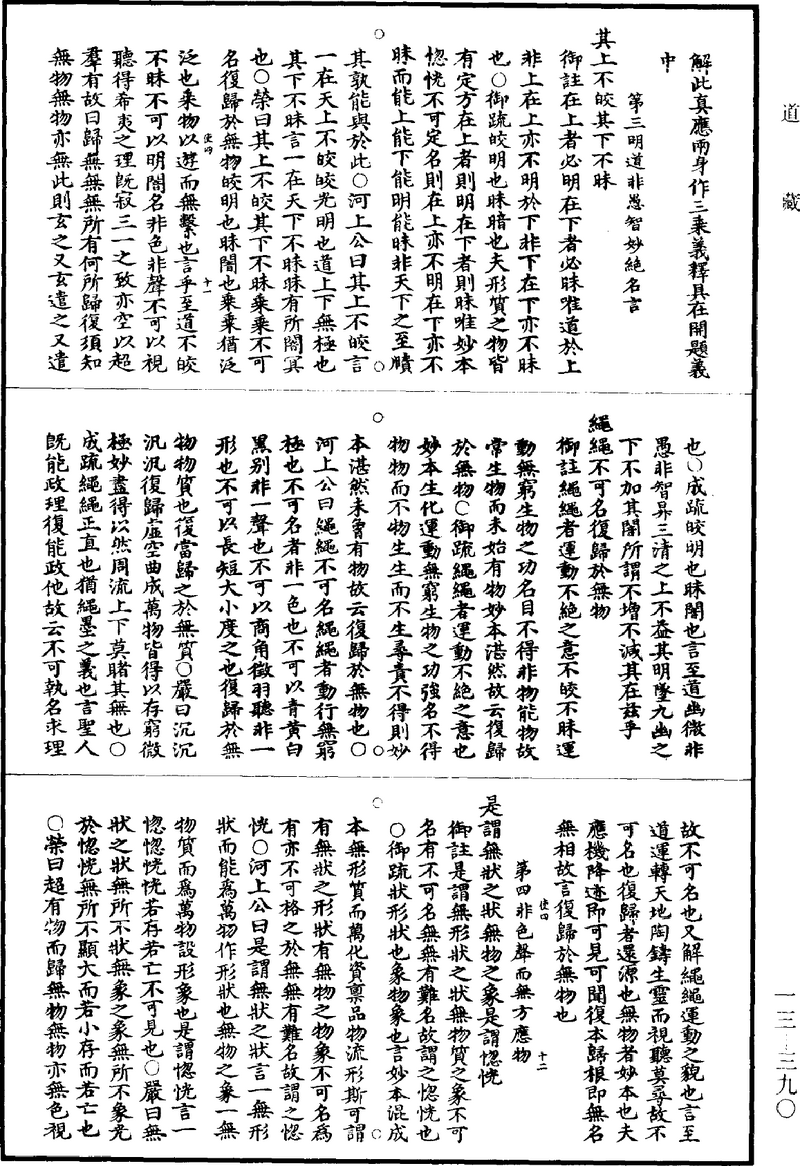 道藏
解此真應兩身作三乘義釋具在開題義
中
第三明道非愚智妙絕名言
其上不皦其下不昧
御註在上者必明在下者必昧唯道於上
非上在上亦不明於下非下在下亦不昧
也○御疏皦明也昧暗也夫形質之物皆
有定方在上者則明在下者則昧唯妙本
惚恍不可定名則在上亦不明在下亦不
昧而能上能下能明能昧非天下之至賾
其孰能與於此○河上公曰其上不皦言
一在天上不皦皦光明也道上下無極也
其下不昧言一在天下不昧昧有所闇冥
也○榮曰其上不皦其下不昧乘乘不可
名復歸於無物皦明也昧闇也乘乘猶泛
使四 十一
泛也乘物以遊而無繫也言乎至道不皦
不昧不可以明闇名非色非聲不可以視
聽得希夷之理既寂三一之致亦空以超
羣有故曰歸無無無所有何所歸復須知
無物無物亦無此則玄之又玄遣之又遣
也○成疏皦明也昧闇也言至道幽微非
愚非智昇三清之上不益其明墜九幽之
下不加其闇所謂不增不減其在茲乎
繩繩不可名復歸於無物
御註繩繩者運動不絕之意不皦不昧運
動無窮生物之功名目不得非物能物故
常生物而未始有物妙本湛然故云復歸
於無物○御疏繩繩者運動不絕之意也
妙本生化運動無窮生物之功強名不得
物物而不物生生而不生尋責不得則妙
本湛然未曾有物故云復歸於無物也○
河上公曰繩繩不可名繩繩者動行無窮
極也不可名者非一色也不可以青黃白
黑别非一聲也不可以商角徵羽聽非一
形也不可以長短大小度之也復歸於無
物物質也復當歸之於無質○嚴曰沉沉
汎汎復歸虛空曲成萬物皆得以存窮微
極妙盡得以然周流上下莫睹其無也○
成疏繩繩正直也猶繩墨之義也言聖人
既能政理復能政他故云不可執名求理
故不可名也又解繩繩運動之貌也言至
道運轉天地陶鑄生靈而視聽莫尋故不
可名也復歸者還源也無物者妙本也夫
應機降迹即可見可聞復本歸根即無名
無相故言復歸於無物也
使四 十二
第四非色聲而無方應物
是謂無狀之狀無物之象是謂惚恍
御註是謂無形狀之狀無物質之象不可
名有不可名無無有難名故謂之惚恍也
○御疏狀形狀也象物象也言妙本混成
本無形質而萬化資稟品物流形斯可謂
有無狀之形狀有無物之物象不可名為
有亦不可格之於無無有難名故謂之惚
恍○河上公曰是謂無狀之狀言一無形
狀而能為萬物作形狀也無物之象一無
物質而為萬物設形象也是謂惚恍言一
惚惚恍恍若存若亡不可見也○嚴曰無
狀之狀無所不狀無象之象無所不象光
於惚恍無所不顯大而若小存而若亡也
○榮曰超有物而歸無物無物亦無色視
一三—三九〇